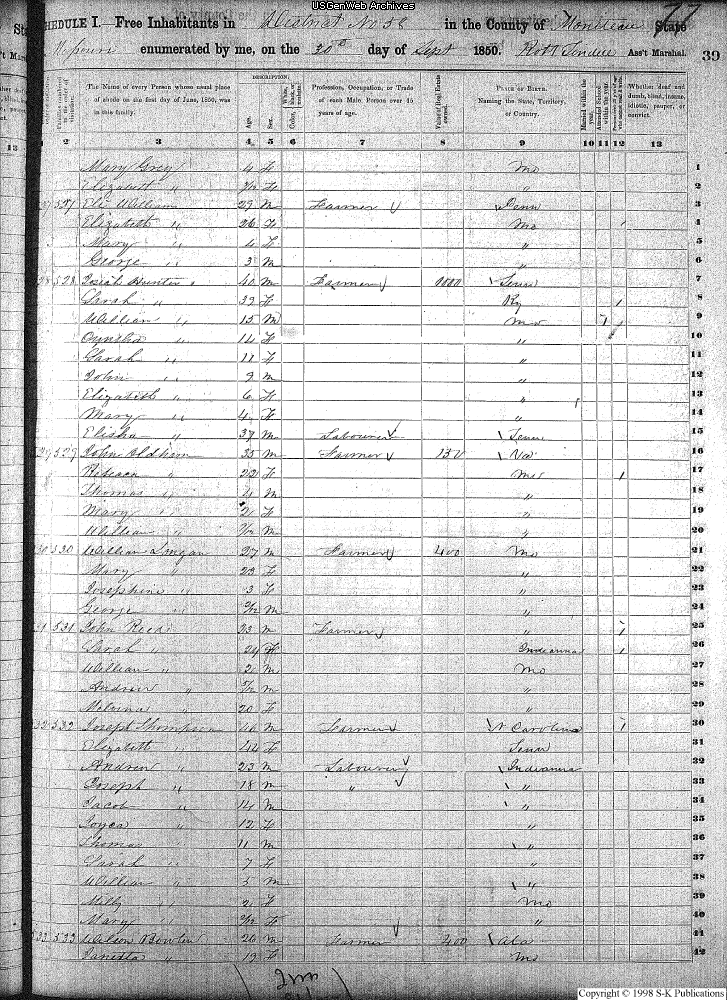 USGenWeb Archives
SCHEDULE I. Free Inhabitants in District No 58 in the County of Moniteau State 77
Missouri enumerated by me, on the 30th day of Sept 1850. Ass't Marshal. 39
DESCRIPTION.
The Name of every Person whose usual place of abode on the first day of June, 1850, was in this family.
Age.
Sex.
Profession, Occupation, or Trade of each Male Person over 15 years of age.
Value of Real Estate owned.
PLACE OF BIRTH. Naming the State, Territory, or Country.
Married within the year.
Whether deaf and dumb, blind, insane, idiotic, pauper, or convict.
2 3 4 5 6 7 8 9 10 11 12 13
Mary Grey 4 F Mo 1
Elizabeth " F " 2
527 Eli William 29 M Farmer Penn 3
Elizabeth " 26 F Mo 4
Mary " 4 F " 5
George " 3 M " 6
528 Josiah Hunter 40 M Farmer 1000 Tenn 7
Sarah " 39 F Ky 8
William " 15 M Mo 9
" 14 F " 10
Sarah " 11 F " 11
John " 9 M " 12
Elizabeth " 6 F " 13
Mary " 4 F " 14
Elisha " 37 M Labourer Tenn 15
529 John Oldham 35 M Farmer 150 Va 16
Rebecca " 22 F Mo 17
Thomas " 4 M " 18
Mary " 2 F " 19
William " M " 20
530 William 27 M Farmer 400 Mo 21
Mary " 23 F " 22
Josephine " 3 F " 23
George " M " 24
531 John Reed 23 M Farmer " 25
Sarah " 24 F Indianna 26
William " 2 M Mo 27
Andrew " M " 28
Malvina " 20 F " 29
532 Joseph Thompson 46 M Farmer N Carolina 30
Elizabeth " 42 F Tenn 31
Andrew " 23 M Labourer Indianna 32
Joseph " 18 M " " 33
Jacob " 14 M " 34
Joyca " 12 F " 35
Thomas " 11 M " 36
Sarah " 7 F " 37
William " 5 M " 38
Milly " 2 F Mo 39
Mary " F " 40
533 Wilson Bowlin 20 M Farmer 400 Ala 41
" 19 F Mo 42
Copyright © 1998 S-K Publications